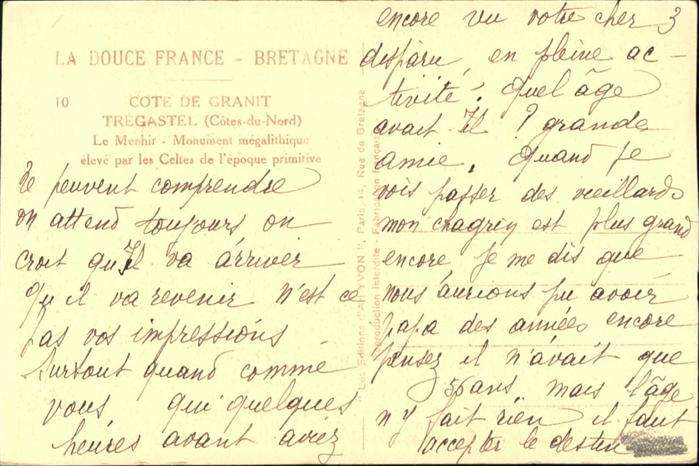 LA DOUCE FRANCE - BRETAGNE
10 COTE DE GRANIT
TREGASTEL (Côtes-du-Nord)
Le Menhir - Monument mégalithique
élevé par les Celtes de l'époque primitive
le peuvent comprendre
on attend toujours on
croit qu'Il va arriver
qu'il va revenir n'est ce
pas vos impressions
surtout quand comme
vous qui quelques
heures avant aviez
Les Editions d'Art "YVON", Paris, 14, Rue de Bretagne
Reproduction Interdite - Fabrication française
3
encore vu votre cher
disparu, en pleine ac-
tivité! Quel âge
avait Il ? grande
amie. Quand je
vois passer des vieillards
mon chagrin est plus grand
encore je me dis que
nous aurions pu avoir
papa des années encore
pensez il n'avait que
ans, mais l'âge
n'y fait rien il faut
accepter le destin